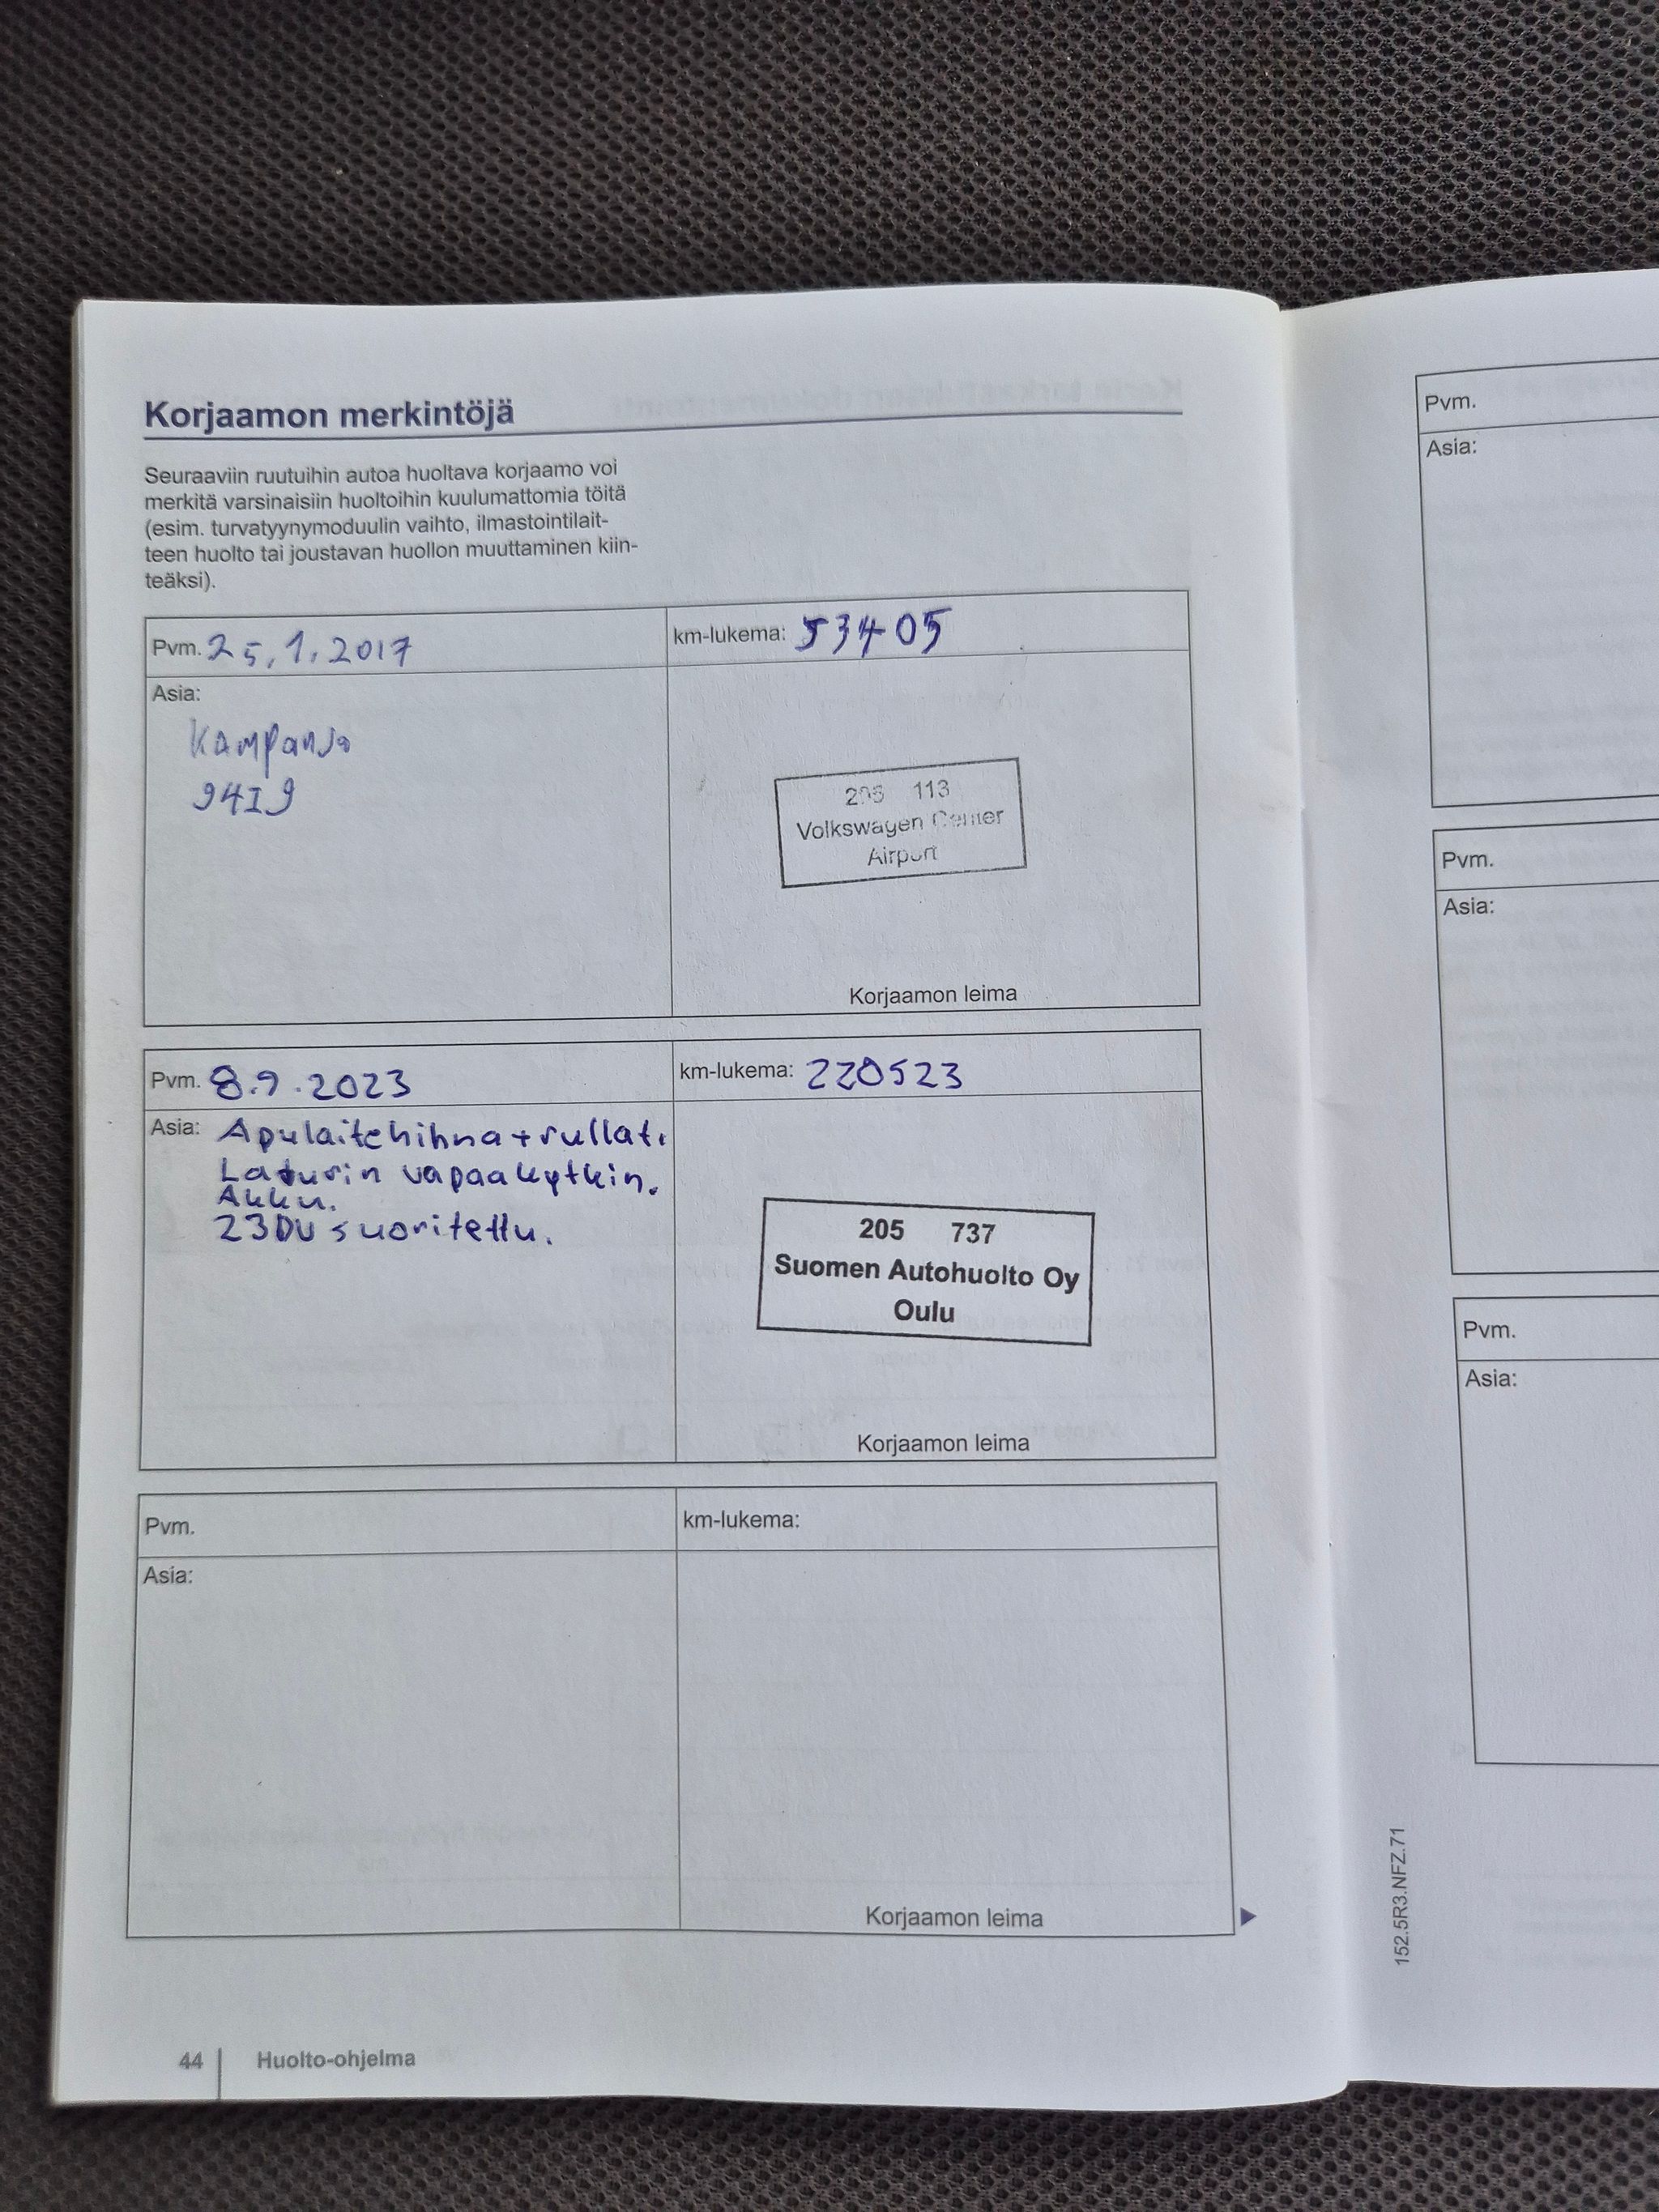 Korjaamon merkintöjä
Seuraaviin ruutuihin autoa huoltava korjaamo voi
merkitä varsinaisiin huoltoihin kuulumattomia töitä
(esim. turvatyynymoduulin vaihto, ilmastointilait-
teen huolto tai joustavan huollon muuttaminen kiin-
teäksi).
Pvm. 25.1.2017 km-lukema: 53405
Asia:
Kampanja
94I9
113
Volkswagen Center
Airport
Korjaamon leima
Pvm. 8.9.2023 km-lukema: 220523
Asia: Apulaitehihna+rullat.
Laturin vapaakytkin.
Akku.
23DU suoritettu.
205 737
Suomen Autohuolto Oy
Oulu
Korjaamon leima
Pvm. km-lukema:
Asia:
Korjaamon leima
44 Huolto-ohjelma
Pvm.
Asia:
Pvm.
Asia:
Pvm.
Asia:
152.5R3.NFZ.71